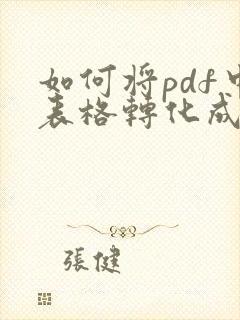 如何将pdf中
表格轉化成
張健